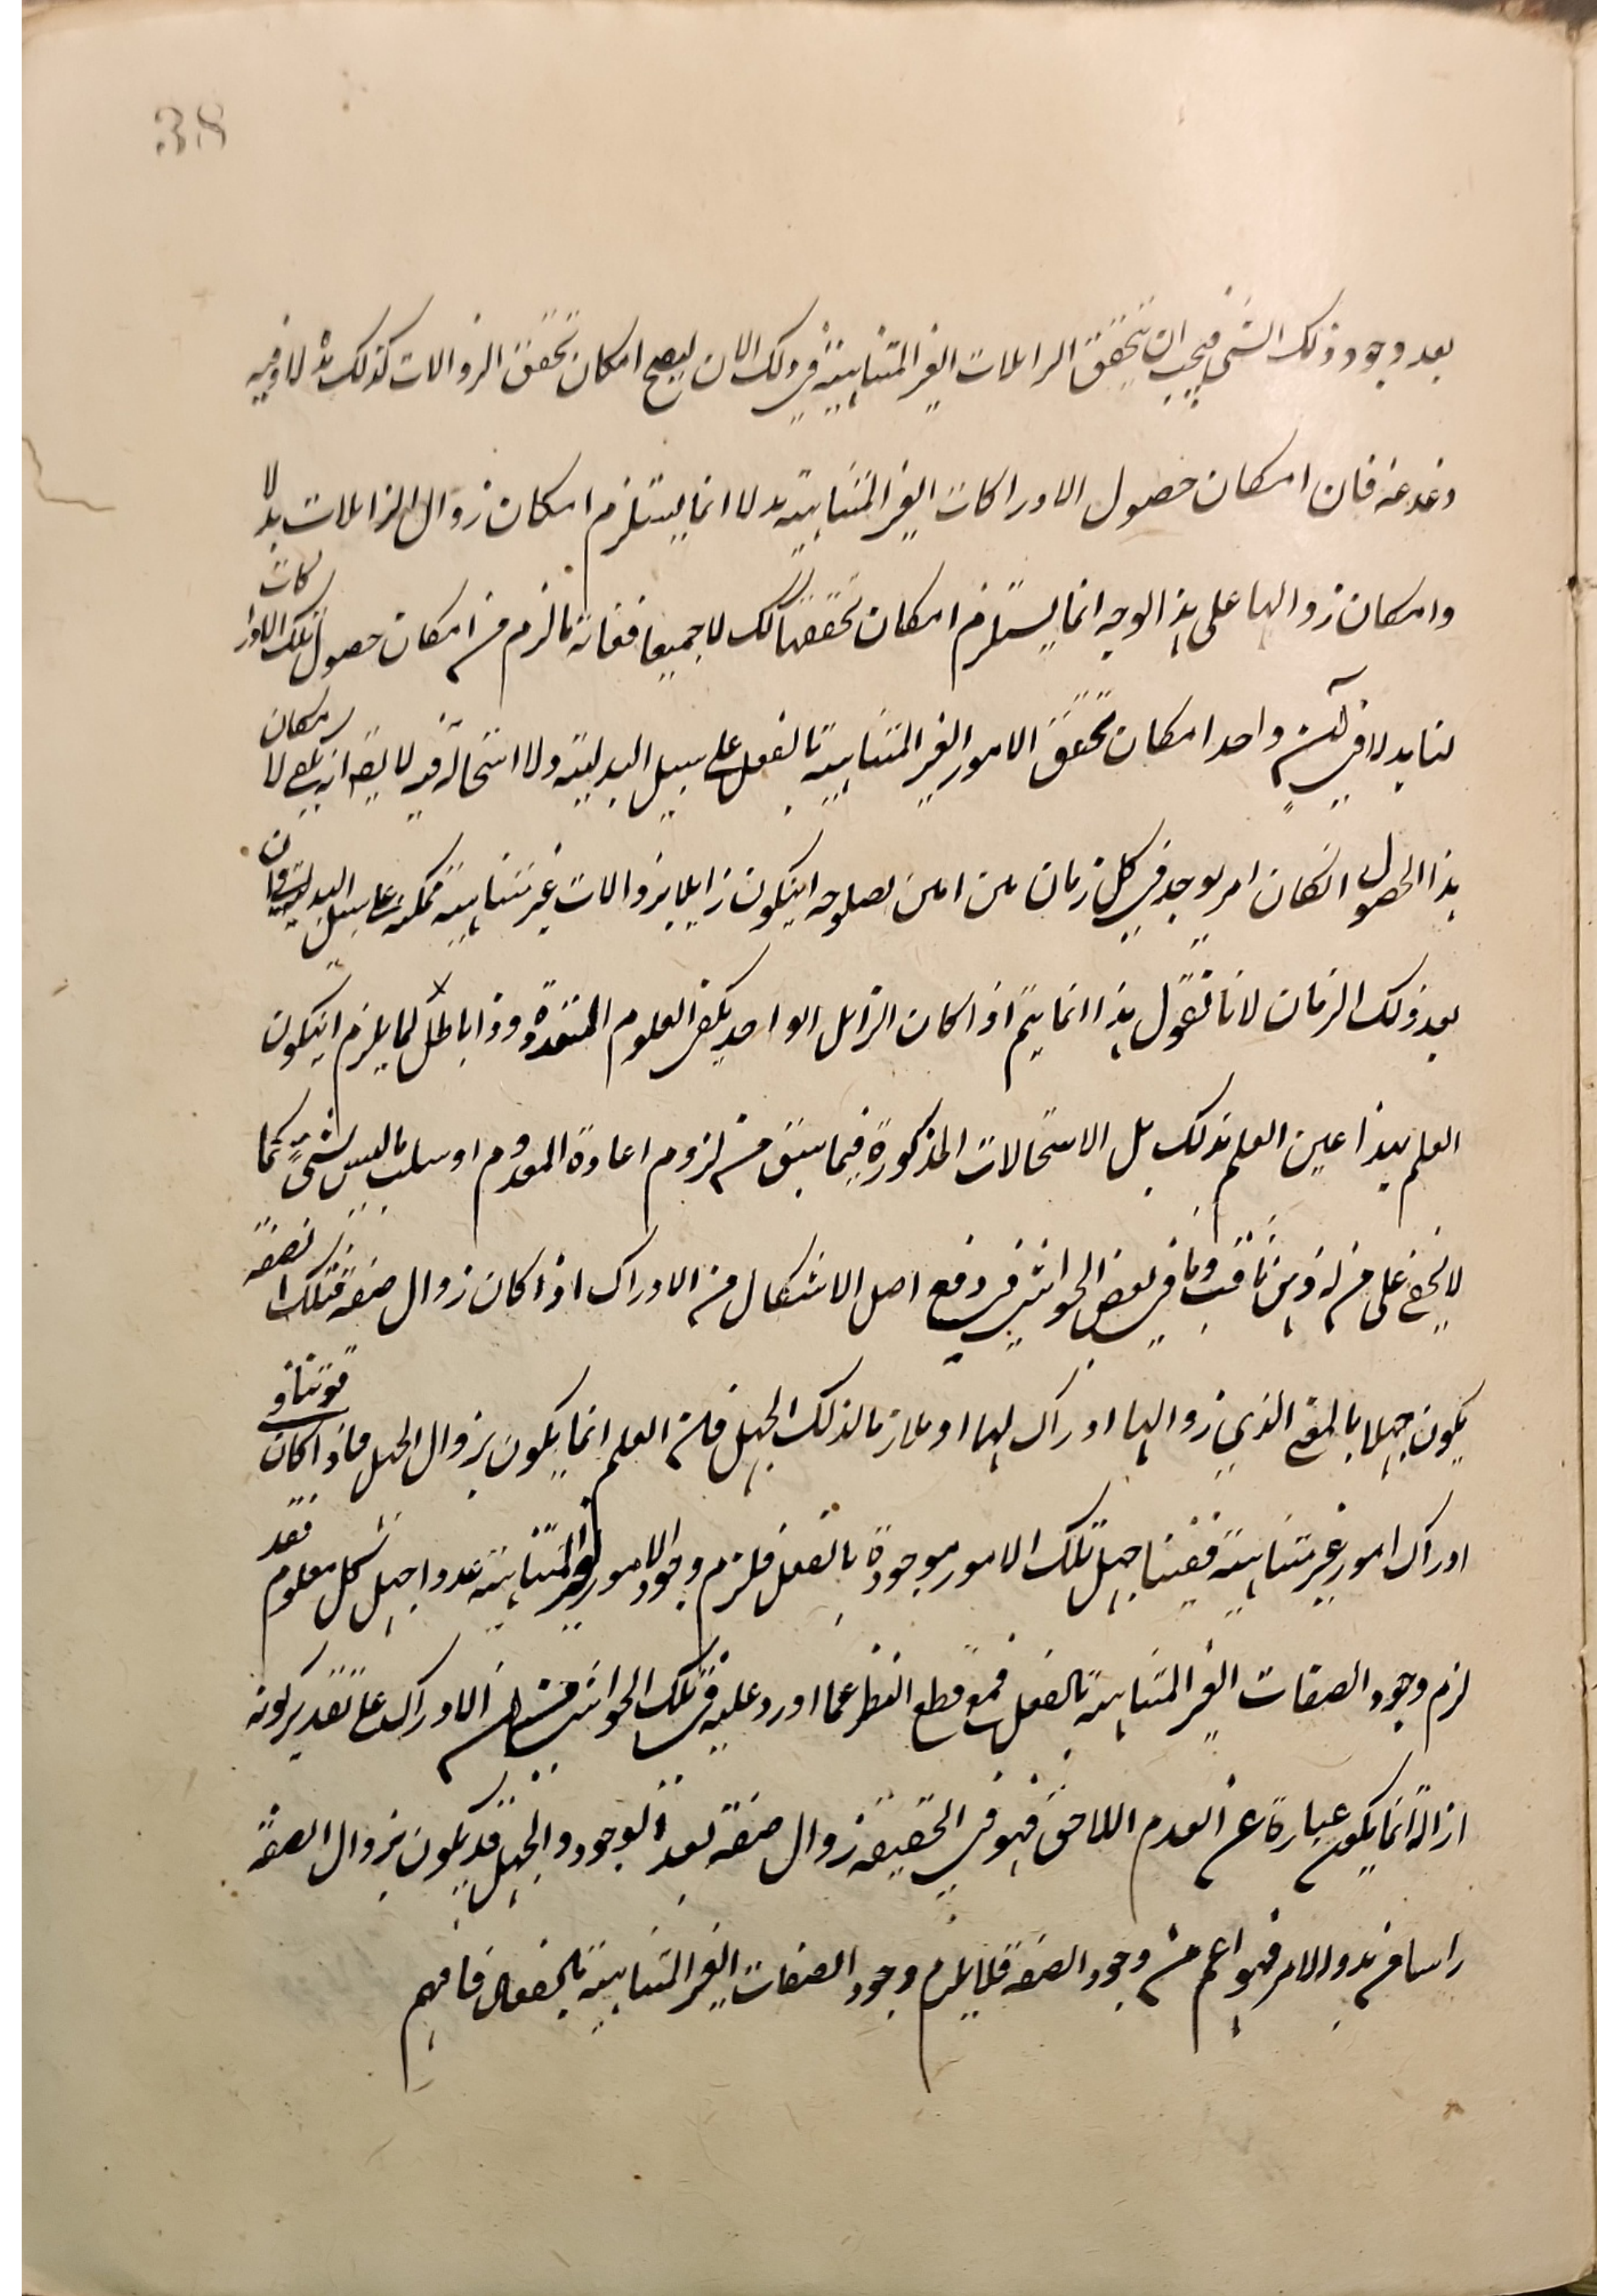 38
بعد وجود ذلك الشئ فيجب ان يتحقق الزائلات الغير المتناهية في ذلك الان ليصح امكان تحقق الزوالات كذلك هذا وفيه
دغدغة فان امكان حصول الادراكات الغير المتناهية بدلا انما يستلزم امكان زوال الزائلات بدلا
وامكان زوالها على هذا الوجه انما يستلزم امكان تحققها كك لا جميعا فغاية ما لزم من امكان حصول تلك الادراكات
لنا بدلا في آن واحد امكان تحقق الامور الغير المتناهية بالفعل على سبيل البدلية ولا استحالة فيه لا يقال انه يكفي لامكان
هذا الحصول امكان امر يوجد في كل زمان من صلوحه ان يكون زايلا بزوالات غير متناهية ممكنة على سبيل البدلية
بعد ذلك الزمان لانا نقول هذا انما يتم اذا كان الزائل الواحد يكفي العلوم المتعددة وذا باطل لما يلزم ان يكون
العلم بهذا عين العلم بذلك بل الاستحالات المذكورة فيما سبق من لزوم اعادة المعدوم او سلب ما ليس بشئ كما
لا يخفى على من له ذهن ثاقب وما في بعض الحواشي في دفع اصل الاشكال من الادراك اذا كان زوال صفة فتلك الصفة
يكون جهلا بالمعنى الذي زوالها ادراك لها او ملازما لذلك الجهل فان العلم انما يكون بزوال الجهل فاذا كان في قوتنا
ادراك امور غير متناهية ففينا جهل تلك الامور موجودة بالفعل فلزم وجود الامور الغير المتناهية عدد اجهل كل معلوم فقد
لزم وجود الصفات الغير المتناهية بالفعل فمع قطع النظر عما اورد عليه في تلك الحواشي الادراك على تقدير كونه
ازالة انما يكون عبارة عن العدم اللاحق فهو في الحقيقة زوال صفة بعد الوجود والجهل قد يكون بزوال الصفة
راسا في بدو الامر فهو اعم من وجود الصفة فلا يلزم وجود الصفات الغير المتناهية بالفعل فافهم